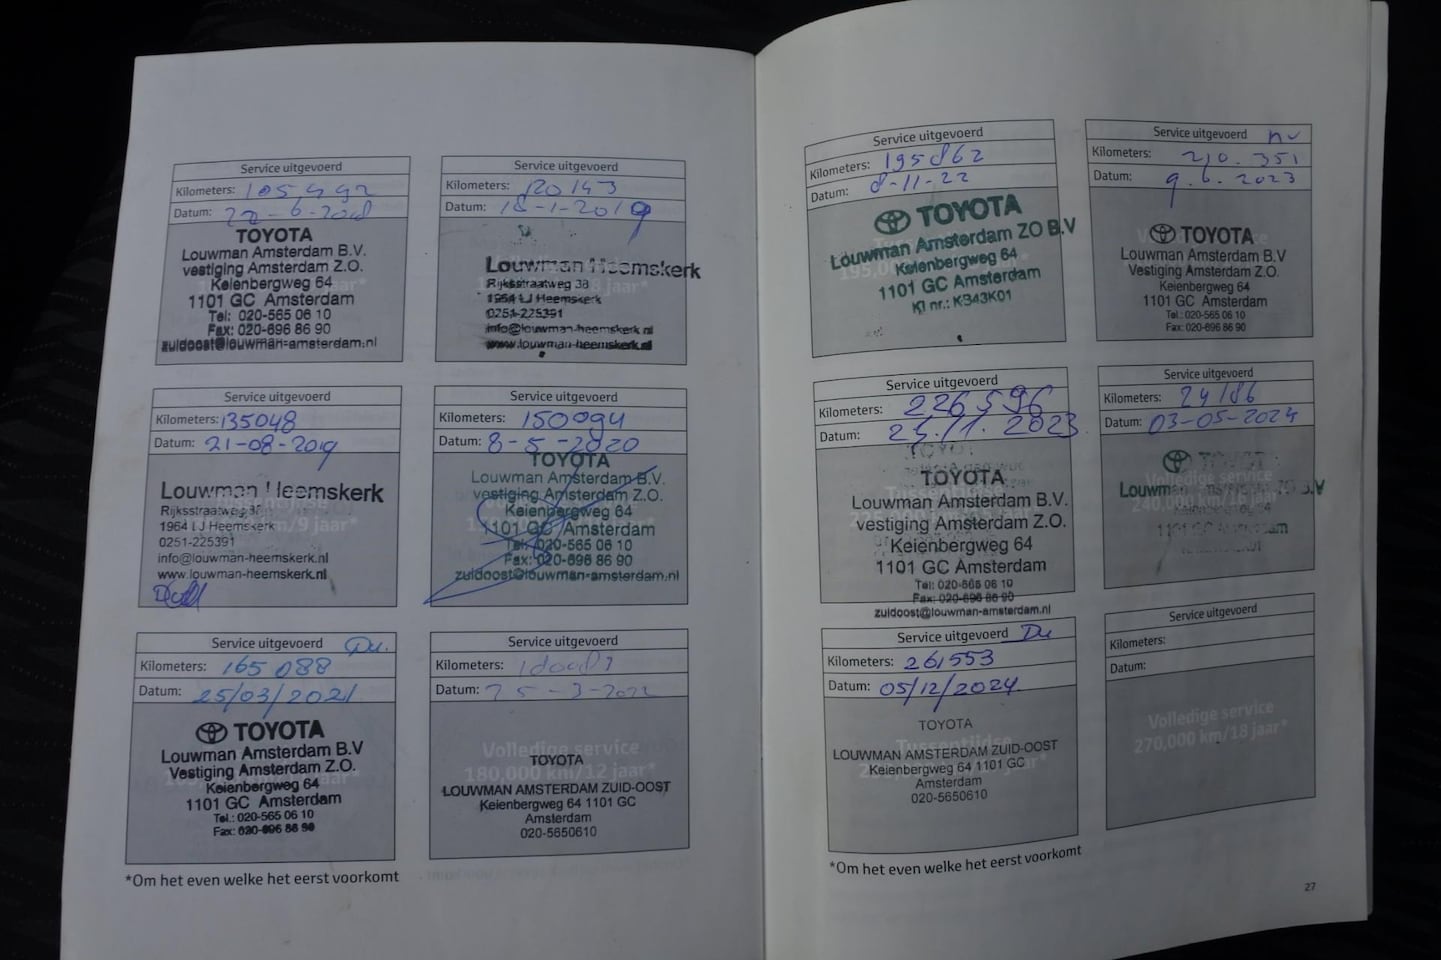 Service uitgevoerd
Kilometers: 105492
Datum: 22-6-2018
TOYOTA
Louwman Amsterdam B.V.
vestiging Amsterdam Z.O.
Keienbergweg 64
1101 GC Amsterdam
Tel: 020-565 06 10
Fax: 020-696 86 90
zuidoost@louwman-amsterdam.nl
Service uitgevoerd
Kilometers: 120143
Datum: 18-1-2019
Louwman Heemskerk
Rijksstraatweg 38
1964 LJ Heemskerk
0251-225391
info@louwman-heemskerk.nl
www.louwman-heemskerk.nl
Service uitgevoerd
Kilometers: 135048
Datum: 21-08-2019
Louwman Heemskerk
Rijksstraatweg 38
1964 LJ Heemskerk
0251-225391
info@louwman-heemskerk.nl
www.louwman-heemskerk.nl
Service uitgevoerd
Kilometers: 150094
Datum: 8-5-2020
TOYOTA
Louwman Amsterdam B.V.
vestiging Amsterdam Z.O.
Keienbergweg 64
1101 GC Amsterdam
Tel: 020-565 06 10
Fax: 020-696 86 90
zuidoost@louwman-amsterdam.nl
Service uitgevoerd
Kilometers: 165088
Datum: 25/03/2021
TOYOTA
Louwman Amsterdam B.V
Vestiging Amsterdam Z.O.
Keienbergweg 64
1101 GC Amsterdam
Tel.: 020-565 06 10
Fax: 020-696 86 90
Service uitgevoerd
Kilometers:
Datum: 25-3-2022
Volledige service
180,000 km/12 jaar*
TOYOTA
LOUWMAN AMSTERDAM ZUID-OOST
Keienbergweg 64 1101 GC
Amsterdam
020-5650610
*Om het even welke het eerst voorkomt
Service uitgevoerd
Kilometers: 195862
Datum: 8-11-22
TOYOTA
Louwman Amsterdam ZO B.V
Keienbergweg 64
1101 GC Amsterdam
KI nr.: K343K01
Service uitgevoerd
Kilometers: 210.351
Datum: 9.6.2023
TOYOTA
Louwman Amsterdam B.V
Vestiging Amsterdam Z.O.
Keienbergweg 64
1101 GC Amsterdam
Tel.: 020-565 06 10
Fax: 020-696 86 90
Service uitgevoerd
Kilometers: 226596
Datum: 11.2023
TOYOTA
Louwman Amsterdam B.V.
vestiging Amsterdam Z.O.
Keienbergweg 64
1101 GC Amsterdam
Tel: 020-565 06 10
Fax: 020-696 86 90
zuidoost@louwman-amsterdam.nl
Service uitgevoerd
Kilometers: 24186
Datum: 03-05-2024
Service uitgevoerd
Kilometers: 261553
Datum: 05/12/2024
TOYOTA
LOUWMAN AMSTERDAM ZUID-OOST
Keienbergweg 64 1101 GC
Amsterdam
020-5650610
Service uitgevoerd
Kilometers:
Datum:
Volledige service
270,000 km/18 jaar*
*Om het even welke het eerst voorkomt
27